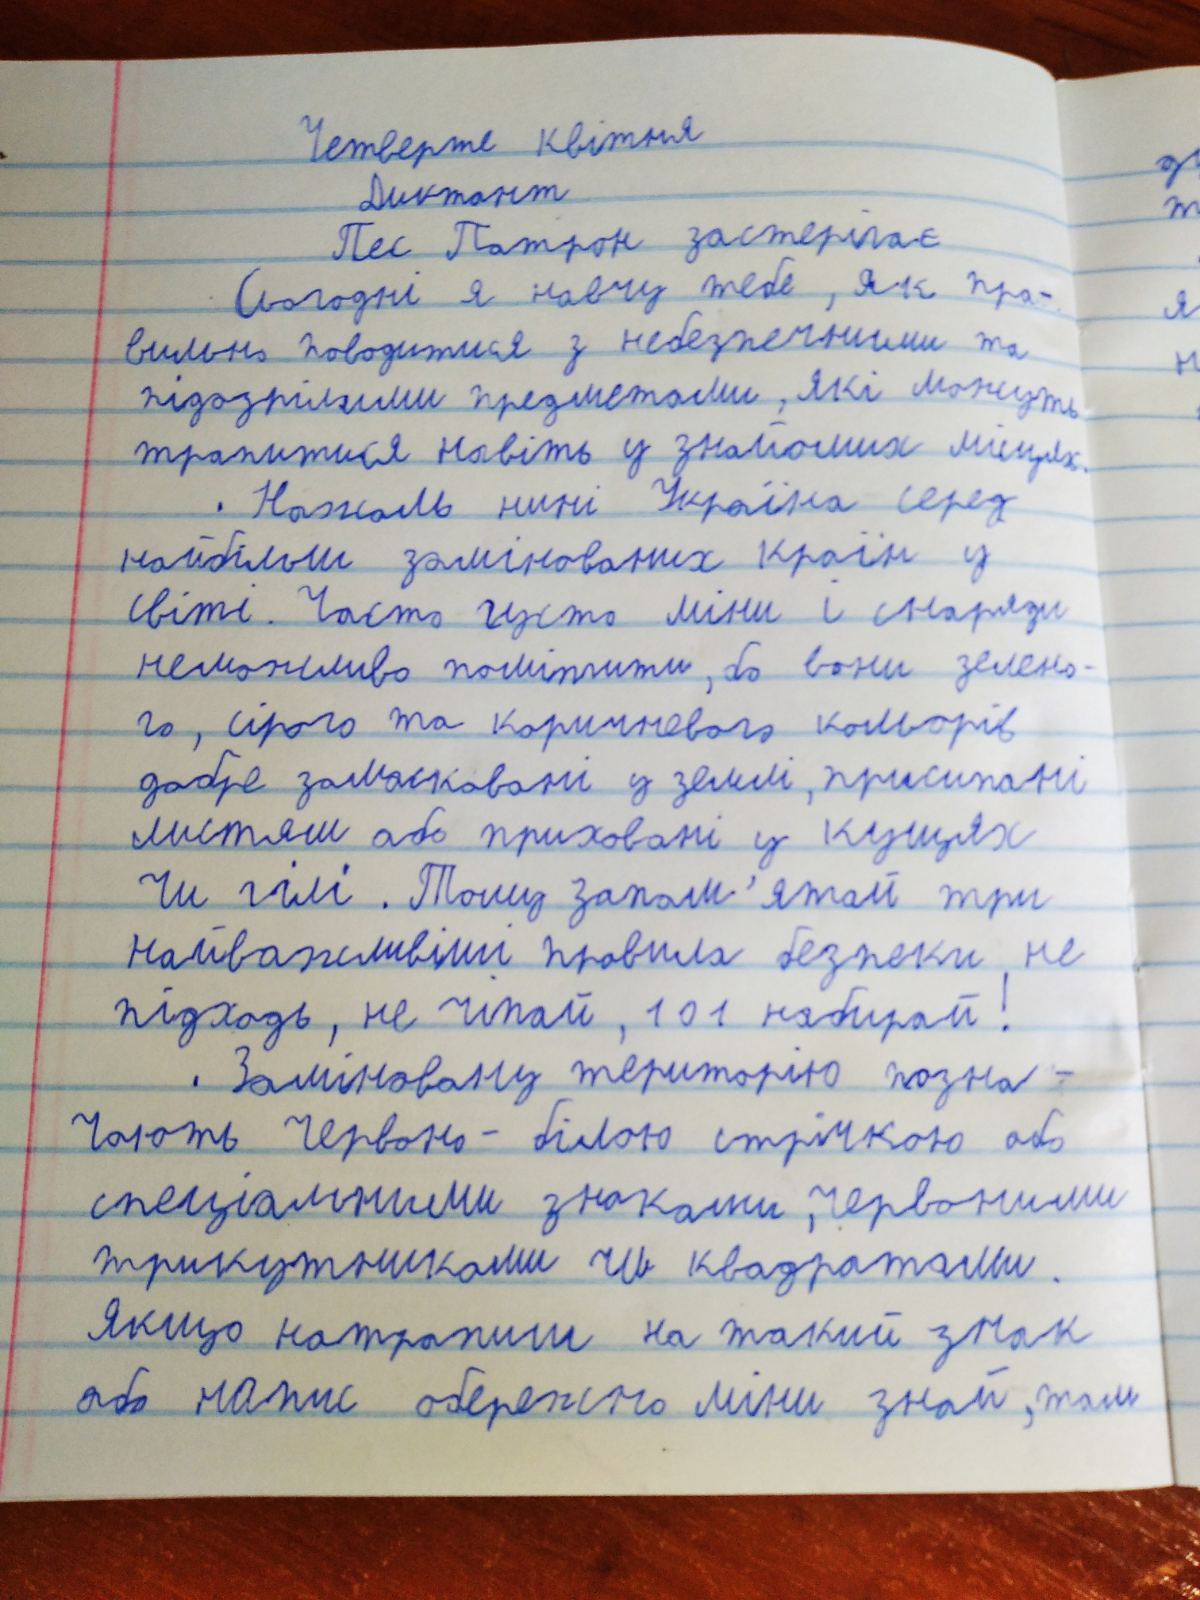 Четверте квітня
Диктант
Пес Патрон застерігає
Сьогодні я навчу тебе, як пра-
вильно поводитися з небезпечними та
підозрілими предметами, які можуть
трапитися навіть у знайомих місцях.
. Нажаль нині Україна серед
найбільш замінованих країн у
світі. Часто густо міни і снаряди
неможливо помітити, бо вони зелено-
го, сірого та коричневого кольорів
добре замасковані у землі, присипані
листям або приховані у кущях
чи гілі. Тому запам'ятай три
найважливіші правила безпеки, не
підходь, не чіпай, 101 набирай!
. Заміновану територію позна-
чають червоно-білою стрічкою або
спеціальними знаками, червоними
трикутниками чи квадратами.
Якщо натрапиш на такий знак
або напис обережно міни знай, там